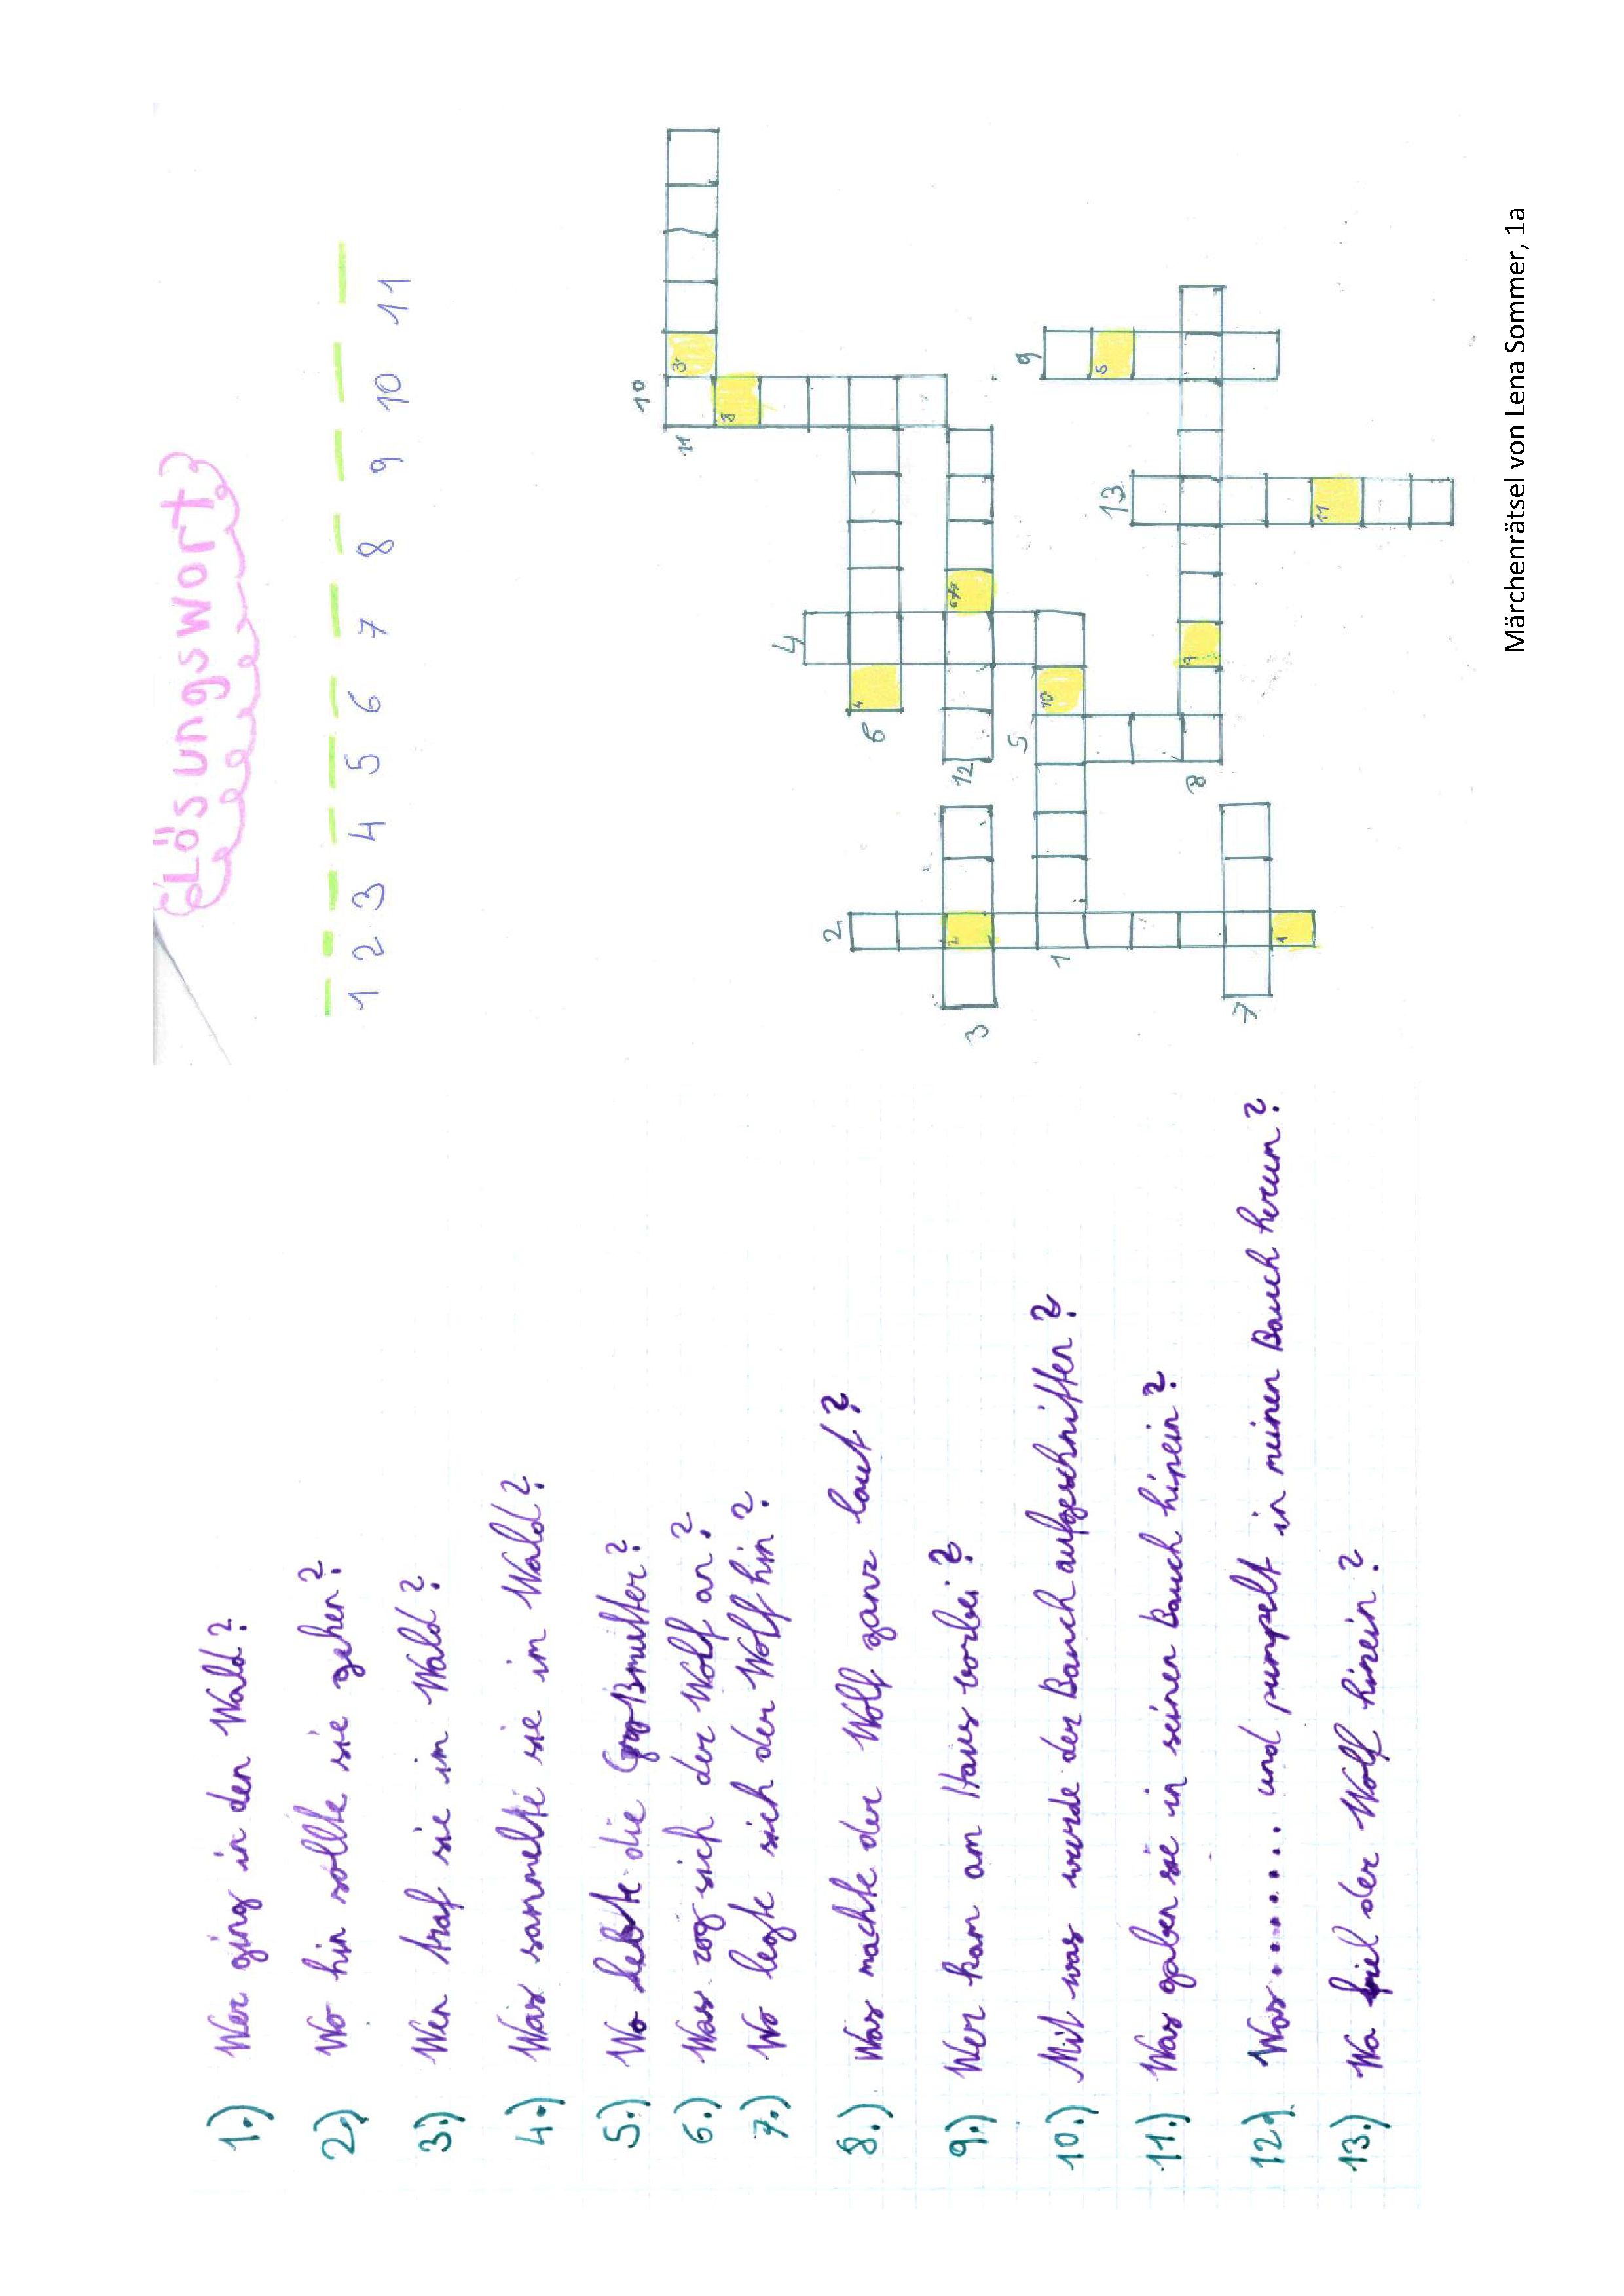 Lösungswort
1 2 3 4 5 6 7 8 9 10 11
1.) Wer ging in den Wald?
2.) Wo hin sollte sie gehen?
3.) Wen traf sie im Wald?
4.) Was sammelte sie im Wald?
5.) Wo lebte die Großmutter?
6.) Was zog sich der Wolf an?
7.) Wo legte sich der Wolf hin?
8.) Was machte der Wolf ganz laut?
9.) Wer kam am Haus vorbei?
10.) Mit was wurde der Bauch aufgeschnitten?
11.) Was gaben sie in seinen Bauch hinein?
12.) Was ........ und pumpelt in meinen Bauch herum?
13.) Wo fiel der Wolf hinein?
10
11 3
8
4
6 4
2
12 6/7
3 2
5 10
9
1
5
13
8 9
7
1
11
Märchenrätsel von Lena Sommer, 1a